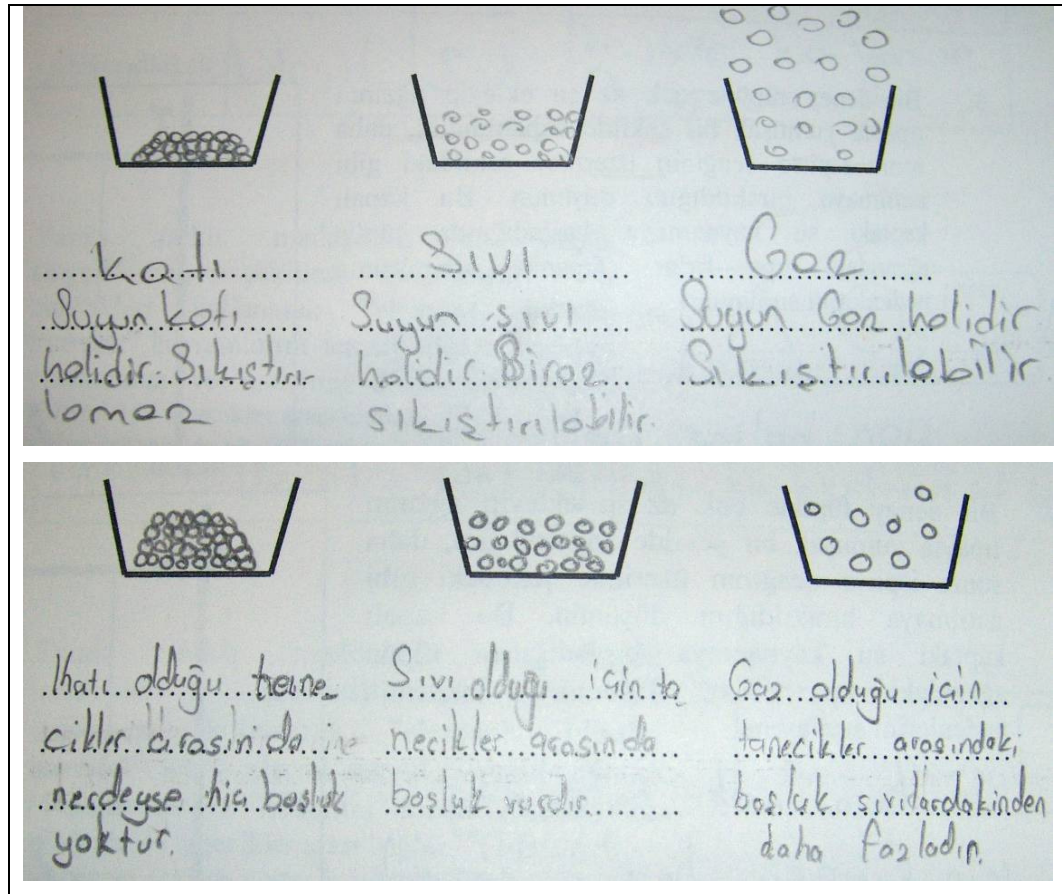 Katı
Suyun katı
halidir. Sıkıştırı
lamaz
Sıvı
Suyun sıvı
halidir Biraz
sıkıştırılabilir.
Gaz
Suyun Gaz halidir
Sıkıştırılabilir
Katı olduğu tane
cikler arasında
nerdeyse hiç boşluk
yoktur.
Sıvı olduğu için ta
necikler arasında
boşluk vardır.
Gaz olduğu için
tanecikler arasındaki
boşluk sıvılardakinden
daha fazladır.